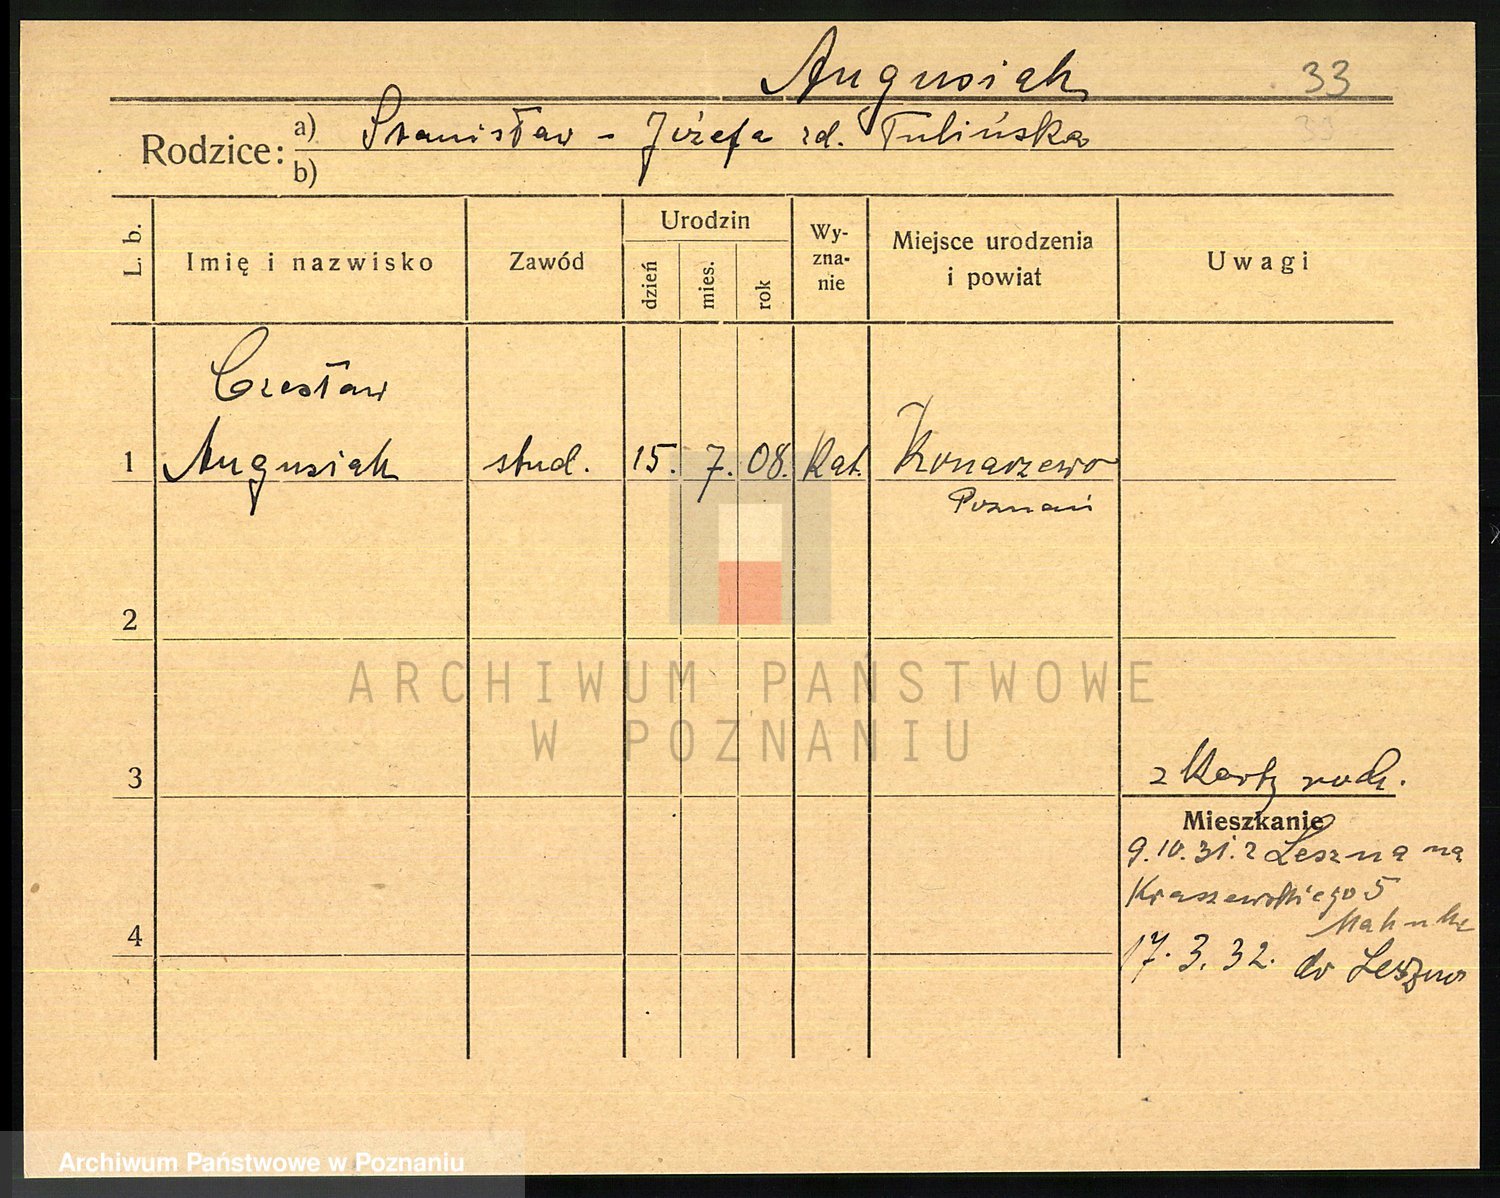 Augusiak 33
Rodzice: a) Stanisław - Józefa zd. Tulińska 33
b)
L. b. Imię i nazwisko Zawód Urodzin dzień mies. rok Wy-zna-nie Miejsce urodzenia i powiat Uwagi
Czesław
1 Augusiak stud. 15. 7. 08. Kat. Konarzewo
Poznań
2
ARCHIWUM PAŃSTWOWE
W POZNANIU
3 z Karty rodz.
Mieszkanie
9.10.31. z Leszna na
Kraszewskiego 5
4
17. 3. 32. do Leszno
Archiwum Państwowe w Poznaniu